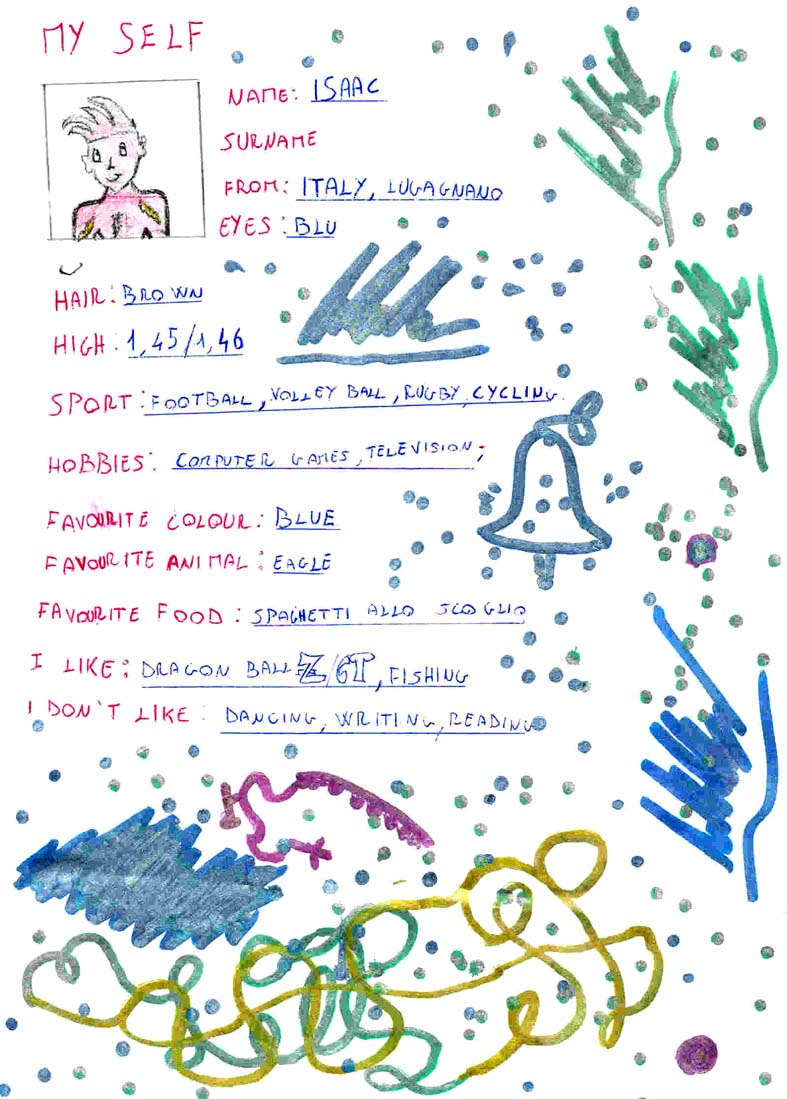 MY SELF
NAME: ISAAC
SURNAME
FROM: ITALY, LUGAGNANO
EYES: BLU
HAIR: BROWN
HIGH: 1,45/1,46
SPORT: FOOTBALL, VOLLEY BALL, RUGBY, CYCLING.
HOBBIES: COMPUTER GAMES, TELEVISION;
FAVOURITE COLOUR: BLUE
FAVOURITE ANIMAL: EAGLE
FAVOURITE FOOD: SPAGHETTI ALLO SCOGLIO
I LIKE: DRAGON BALL Z/GT, FISHING
I DON'T LIKE: DANCING, WRITING, READING